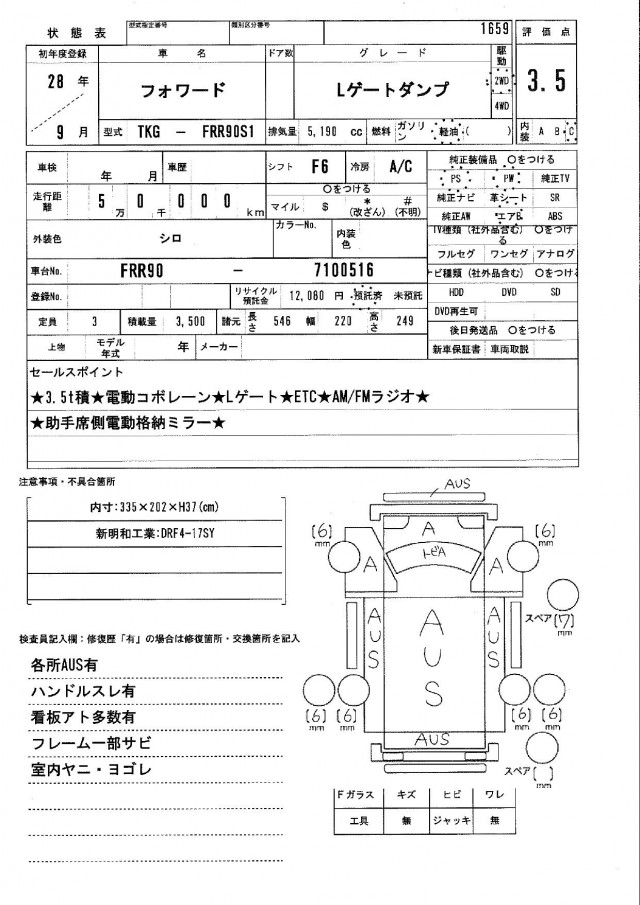 状態表
型式指定番号
個別区分番号
1659
評価点
初年度登録
車名
ドア数
グレード
駆動
28年
フォワード
Lゲートダンプ
2WD
3.5
4WD
9月
型式 TKG － FRR90S1
排気量 5,190 cc
燃料 ガソリン 軽油 ( )
内装 A B C
車検 年 月
車歴
シフト F6
冷房 A/C
純正装備品 〇をつける
PS PW 純正TV
走行距離 5万 0千 0 0 0 km
〇をつける
マイル $ *(改ざん) #(不明)
純正ナビ 革シート SR
純正AW エアB ABS
外装色 シロ
カラーNo.
内装色
TV種類 (社外品含む) 〇をつける
フルセグ ワンセグ アナログ
車台No. FRR90 － 7100516
ナビ種類 (社外品含む) 〇をつけ
登録No.
リサイクル預託金 12,080 円 預託済 未預託
HDD DVD SD
DVD再生可
定員 3
積載量 3,500
諸元 長さ 546 幅 220 高さ 249
後日発送品 〇をつける
上物
モデル年式 年
メーカー
新車保証書 車両取説
セールスポイント
★3.5t積★電動コボレーン★Lゲート★ETC★AM/FMラジオ★
★助手席側電動格納ミラー★
注意事項・不具合箇所
内寸:335×202×H37(cm)
新明和工業:DRF4-17SY
検査員記入欄：修復歴「有」の場合は修復箇所・交換箇所を記入
各所AUS有
ハンドルスレ有
看板アト多数有
フレーム一部サビ
室内ヤニ・ヨゴレ
AUS
A
[6]mm
[6]mm
トビA
A
A
スペア[7]mm
AUS
AUS
AUS
[6]mm
[6]mm
[6]mm
[6]mm
AUS
スペア[ ]mm
Fガラス キズ ヒビ ワレ
工具 無 ジャッキ 無